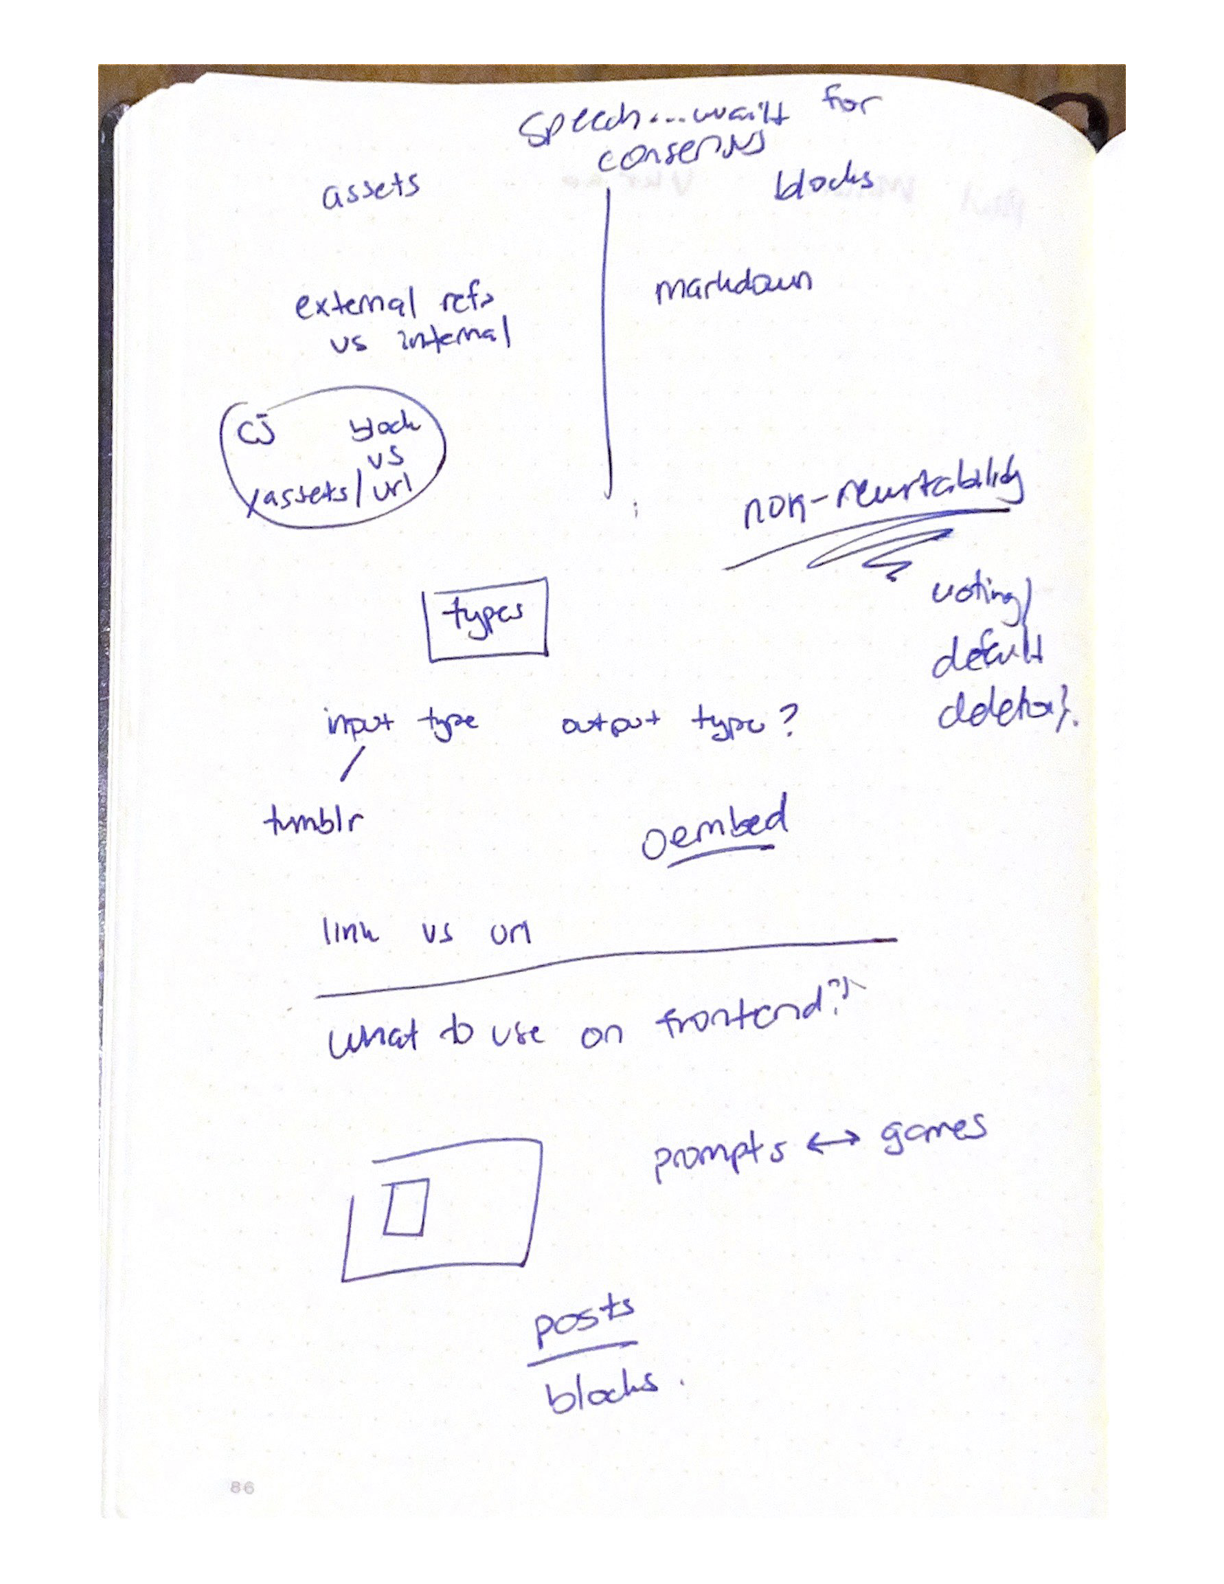 speech...wait for
consensus
assets
blocks
external refs
vs internal
markdown
CJ block
vs
/assets/url
voting/
default
types
input type output type?
tumblr
oembed
link vs url
What to use on frontend?
prompts ↔ games
posts
blocks.
86